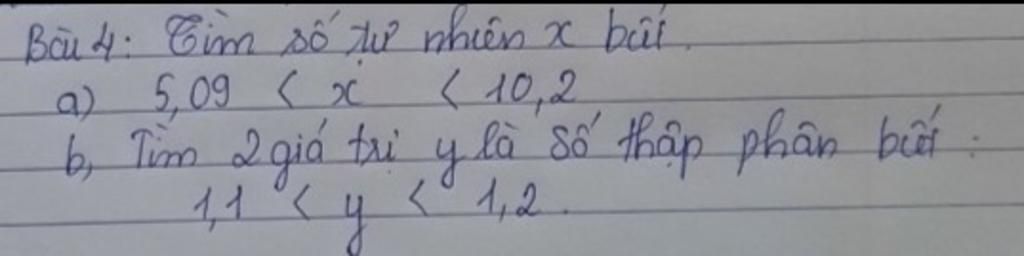 Bài 4: Tìm số tự nhiên x biết.
a) 5,09 < x < 10,2
b, Tìm 2 giá trị y là số thập phân biết :
1,1 < y < 1,2.